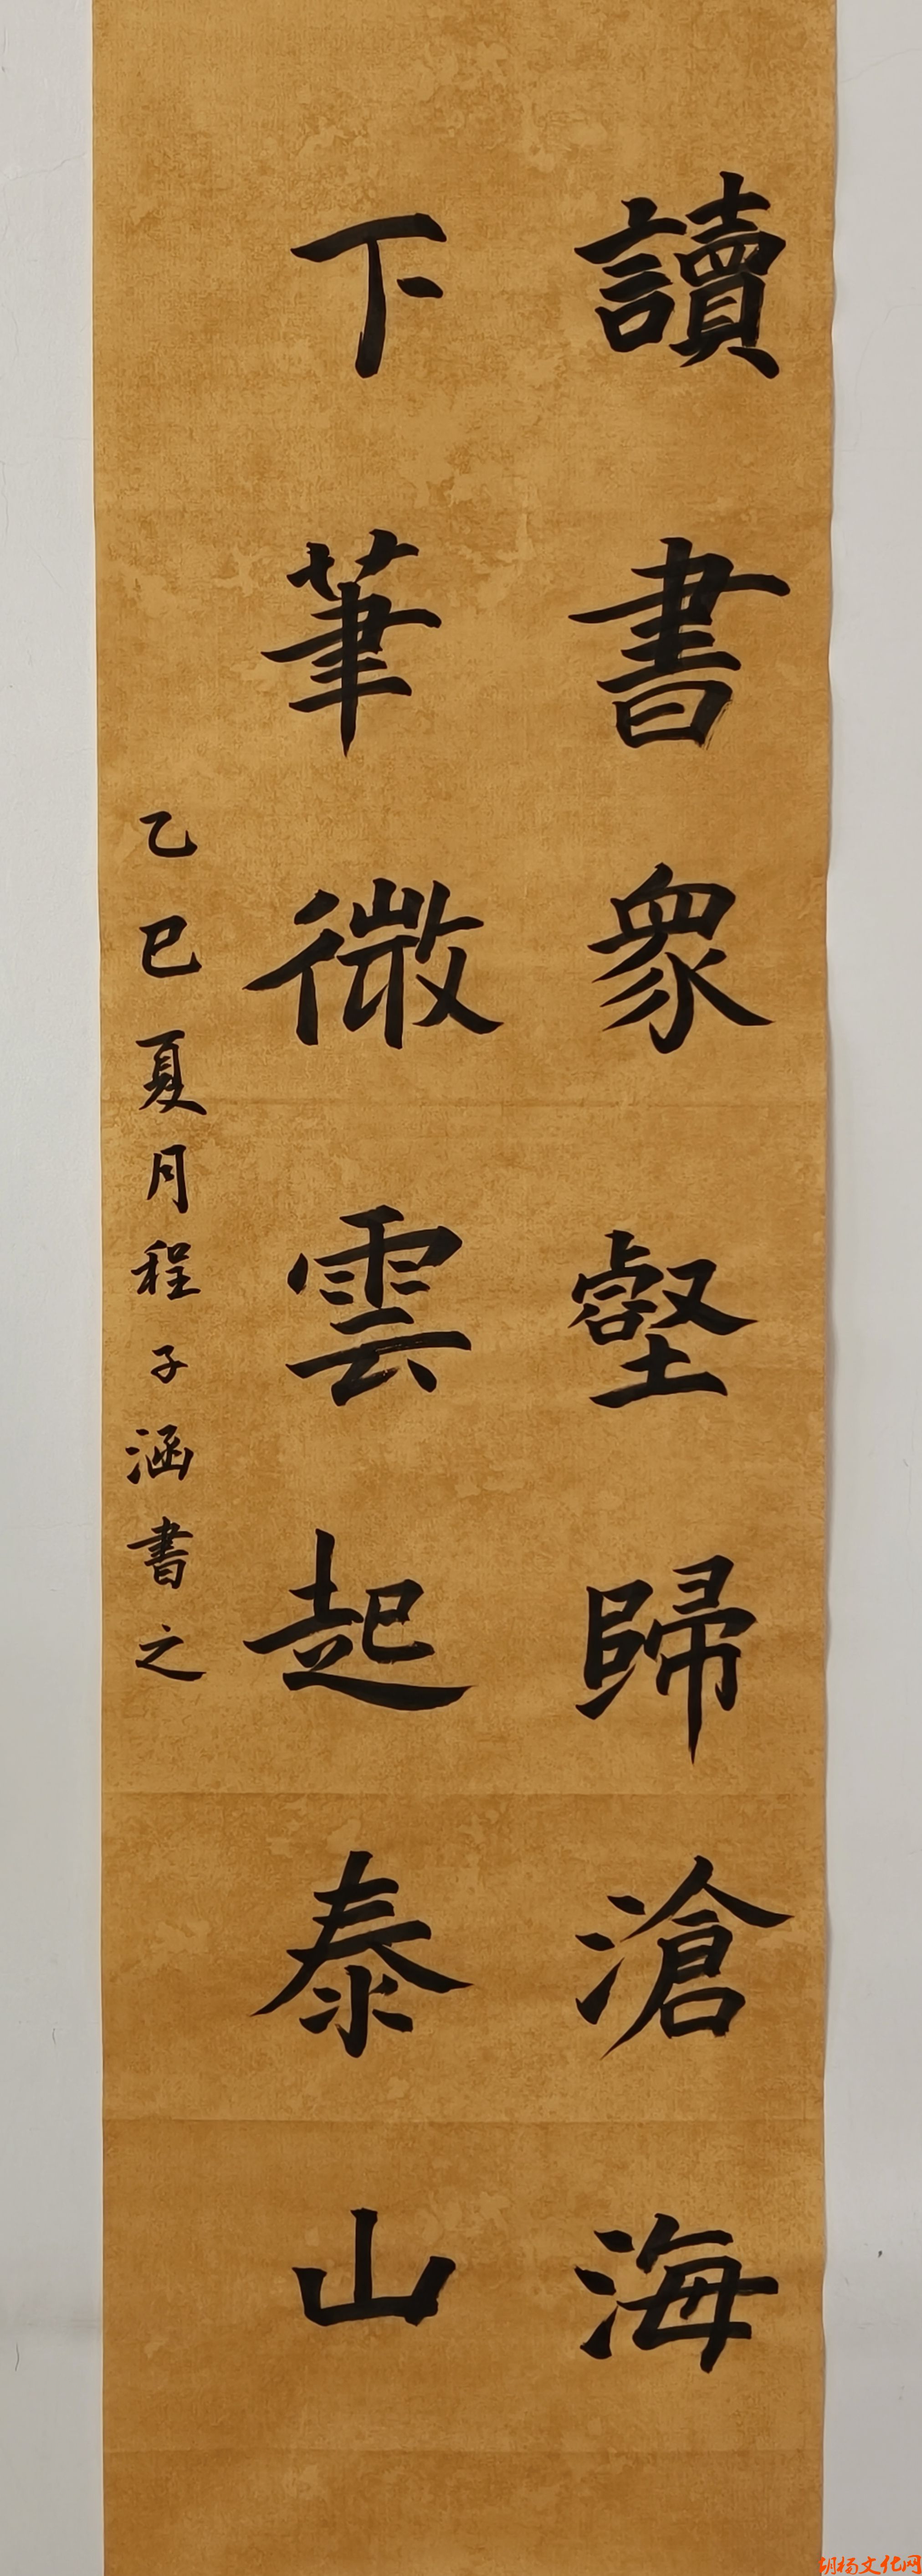 讀書衆壑歸滄海
下筆微雲起泰山
乙巳夏月程子涵書之
胡杨文化网